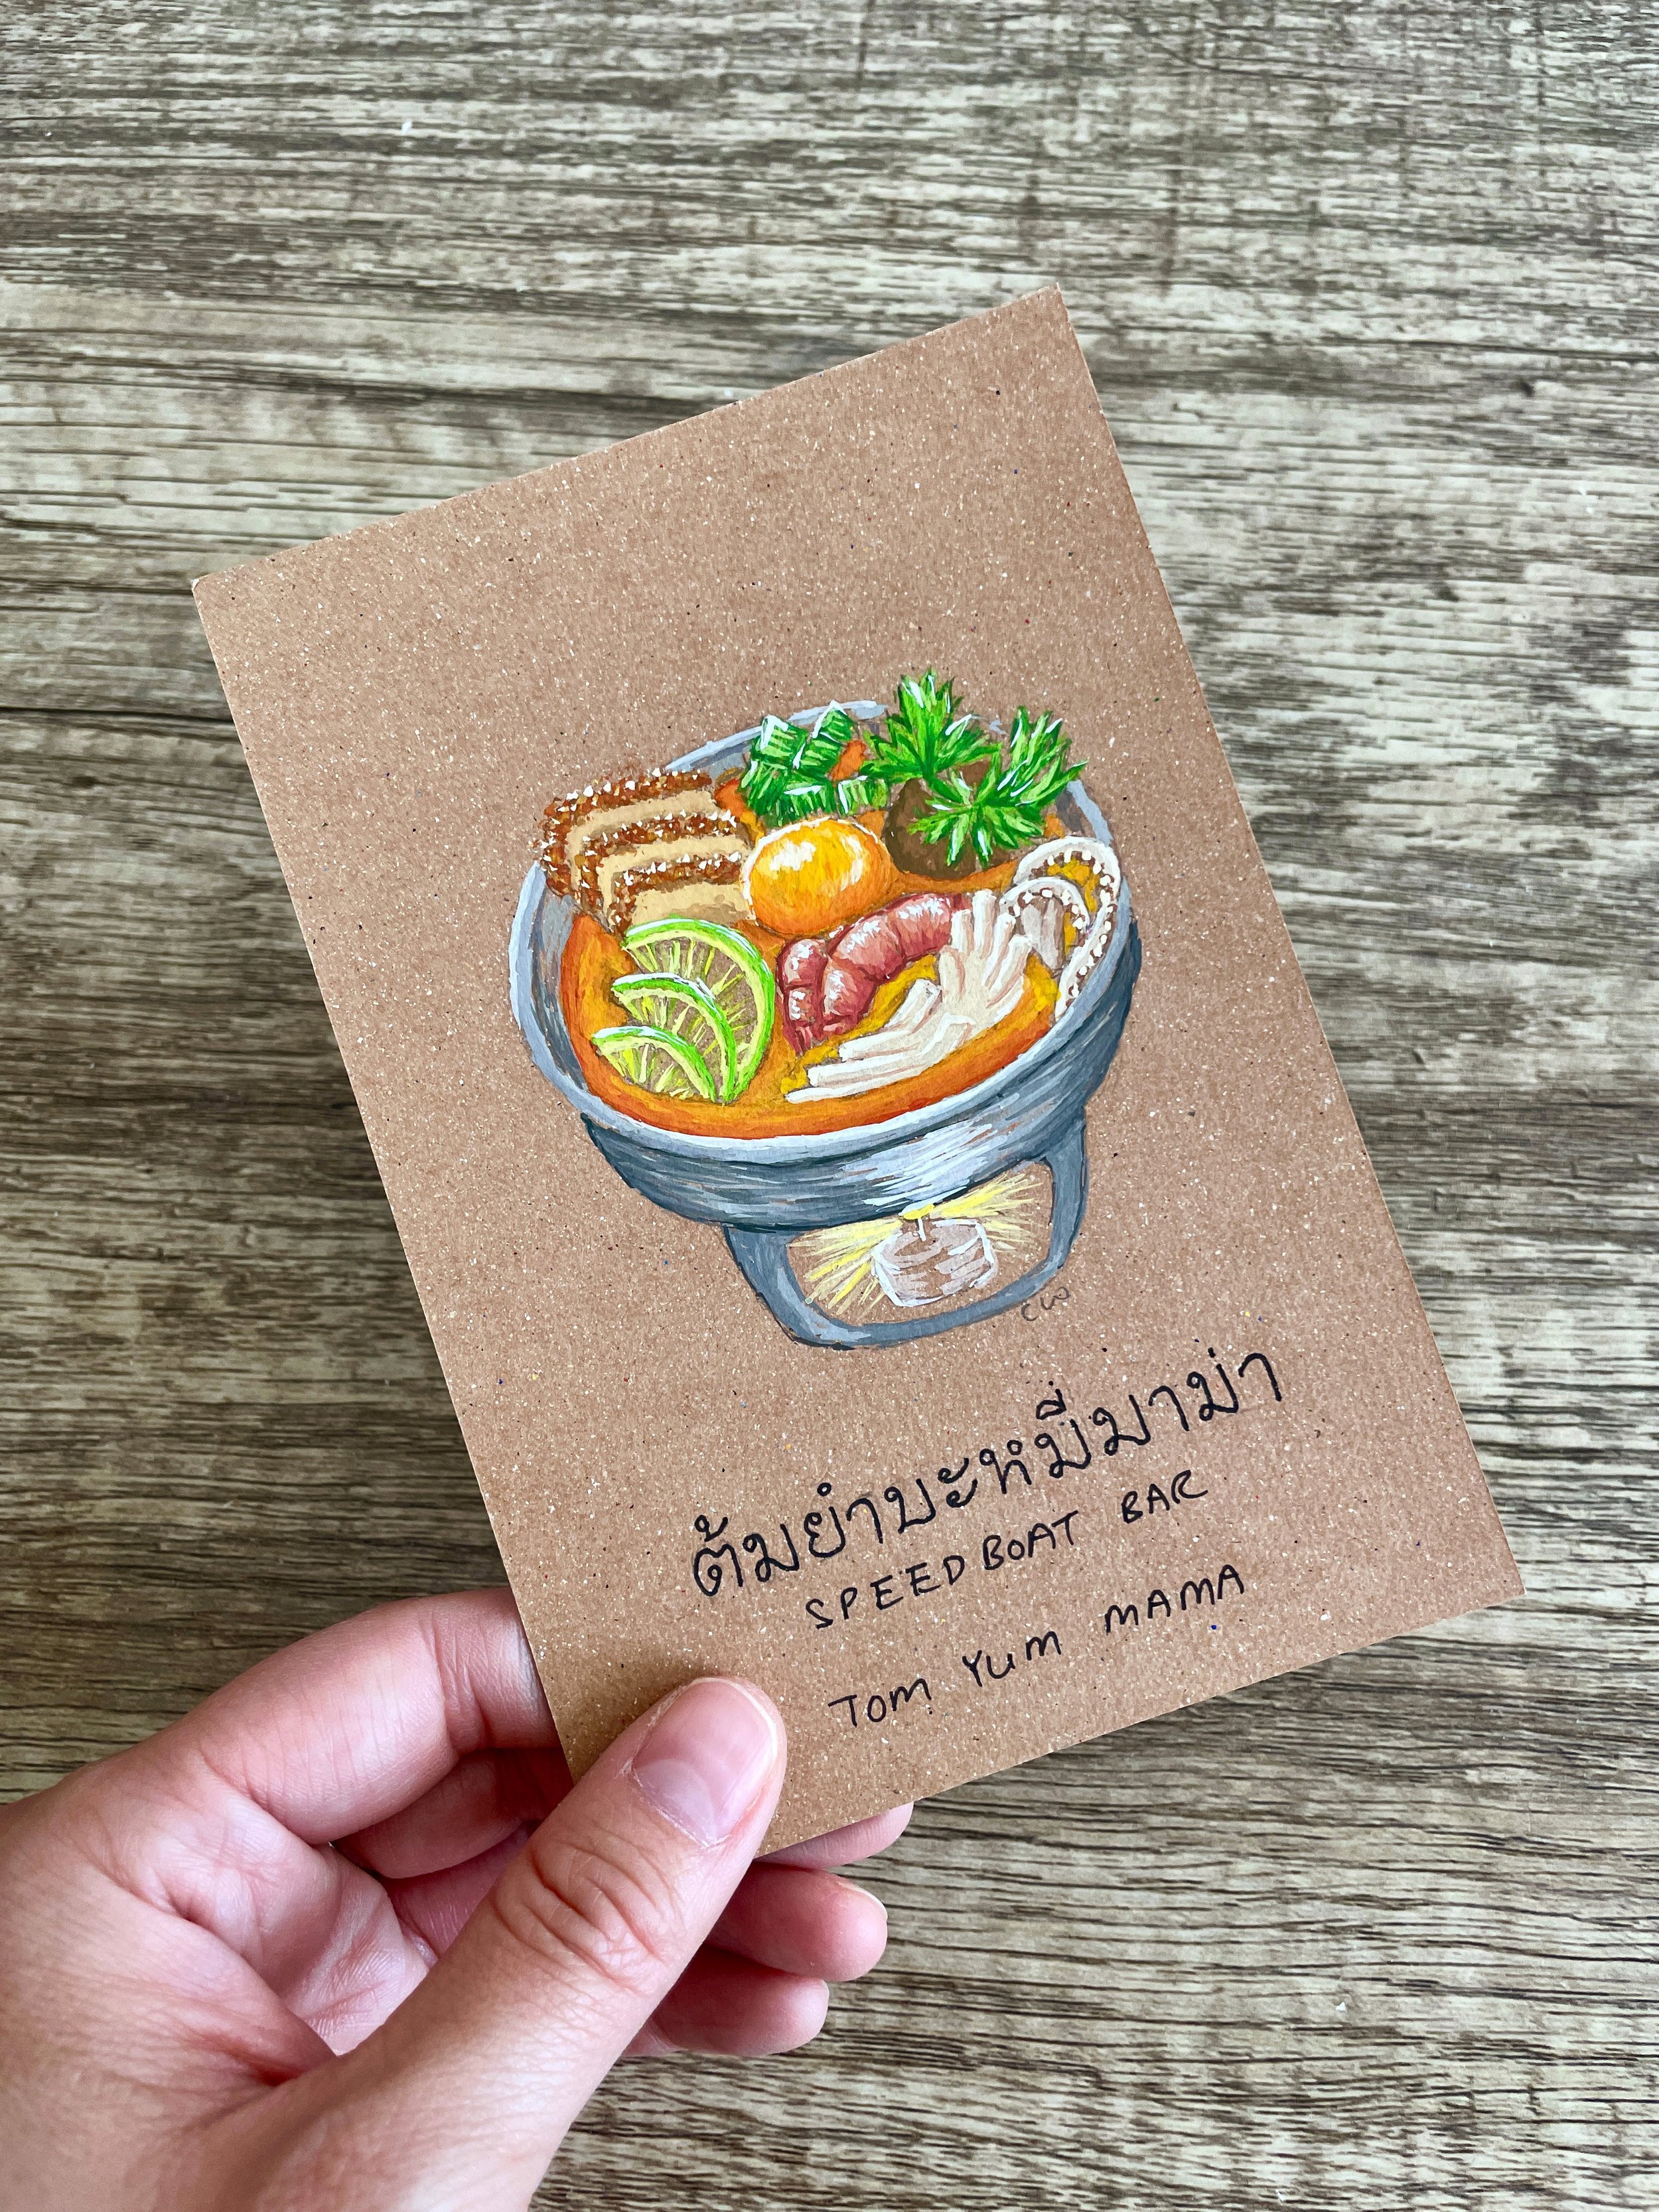 CW
ต้มยำบะหมี่มาม่า
SPEEDBOAT BAR
TOM YUM MAMA